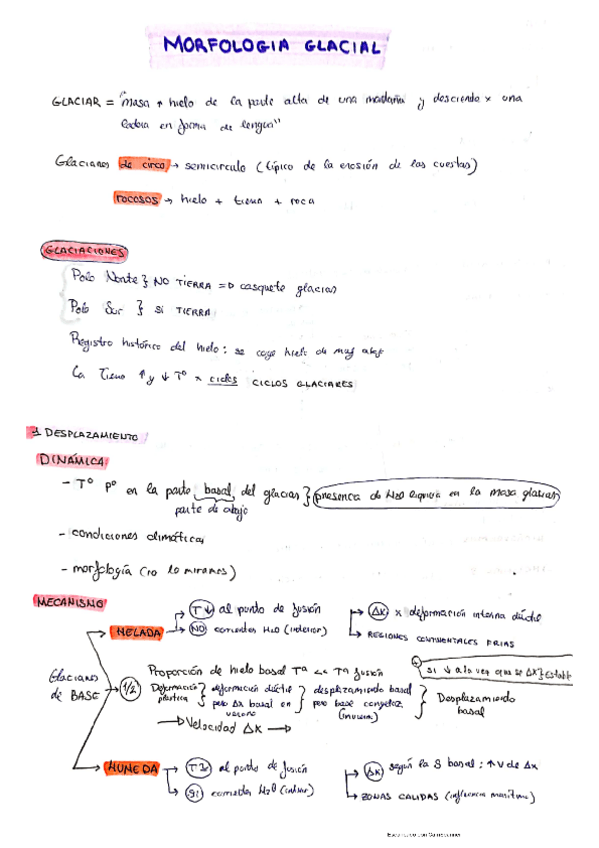 MORFOLOGIA GLACIAL
GLACIAR = "masa ↑ hielo de la parte alta de una montaña y desciende x una
ladera en forma de lengua"
Glaciares de circo → semicirculo (típico de la erosión de las cuestas)
rocosos → hielo + tierra + roca
GLACIACIONES
Polo Norte } NO TIERRA => casquete glaciar
Polo Sur } SI TIERRA
Registro histórico del hielo: se coge hielo de muy abajo
La Tierra ↑ y ↓ Tº x ciclos CICLOS GLACIARES
1 DESPLAZAMIENTO
DINÁMICA
- Tº Pº en la parte basal del glaciar } presencia de H2O liquida en la masa glaciar
parte de abajo
- condiciones climáticas
- morfología (no lo miramos)
MECANISMO
HELADA
T↓ al punto de fusión
NO corrientes H2O (interior)
ΔX x deformación interna dúctil
REGIONES CONTINENTALES FRIAS
Glaciares de BASE
1/2
Proporción de hielo basal Tª << Tª fusión
Deformación plástica } deformación dúctil pero Δx basal en verano } desplazamiento basal pero base congelada } Desplazamiento basal
→ Velocidad ΔX →
si ↓ a la vez que se ΔX } estable
HUMEDA
al punto de fusión
SI corrientes H2O (interior)
ΔX según la S basal: ↑ V de Δx
ZONAS CALIDAS (influencia marítima)
Escaneado con CamScanner